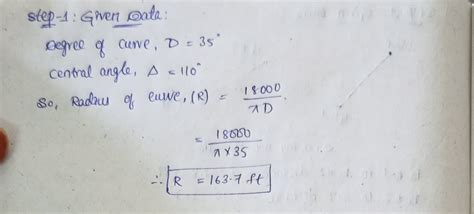 Step-1: Given Data:
Degree of curve, D = 35°
central angle, Δ = 110°
So, Radius of curve, (R) = 18000 / πD
= 18000 / π×35
∴ R = 163.7 ft